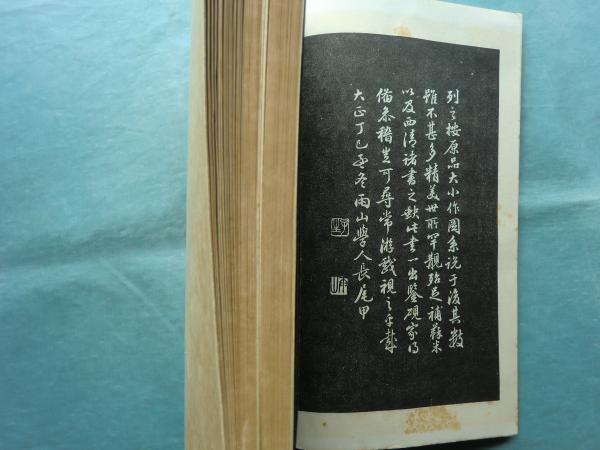 列之按原品大小作圖系説于後其数
雖不甚多精美世所罕觀殆足補蘇米
以及西清諸書之缺此書一出鑒硯家得
備参稽豈可尋常游戯視之乎哉
大正丁巳孟冬雨山學人長尾甲